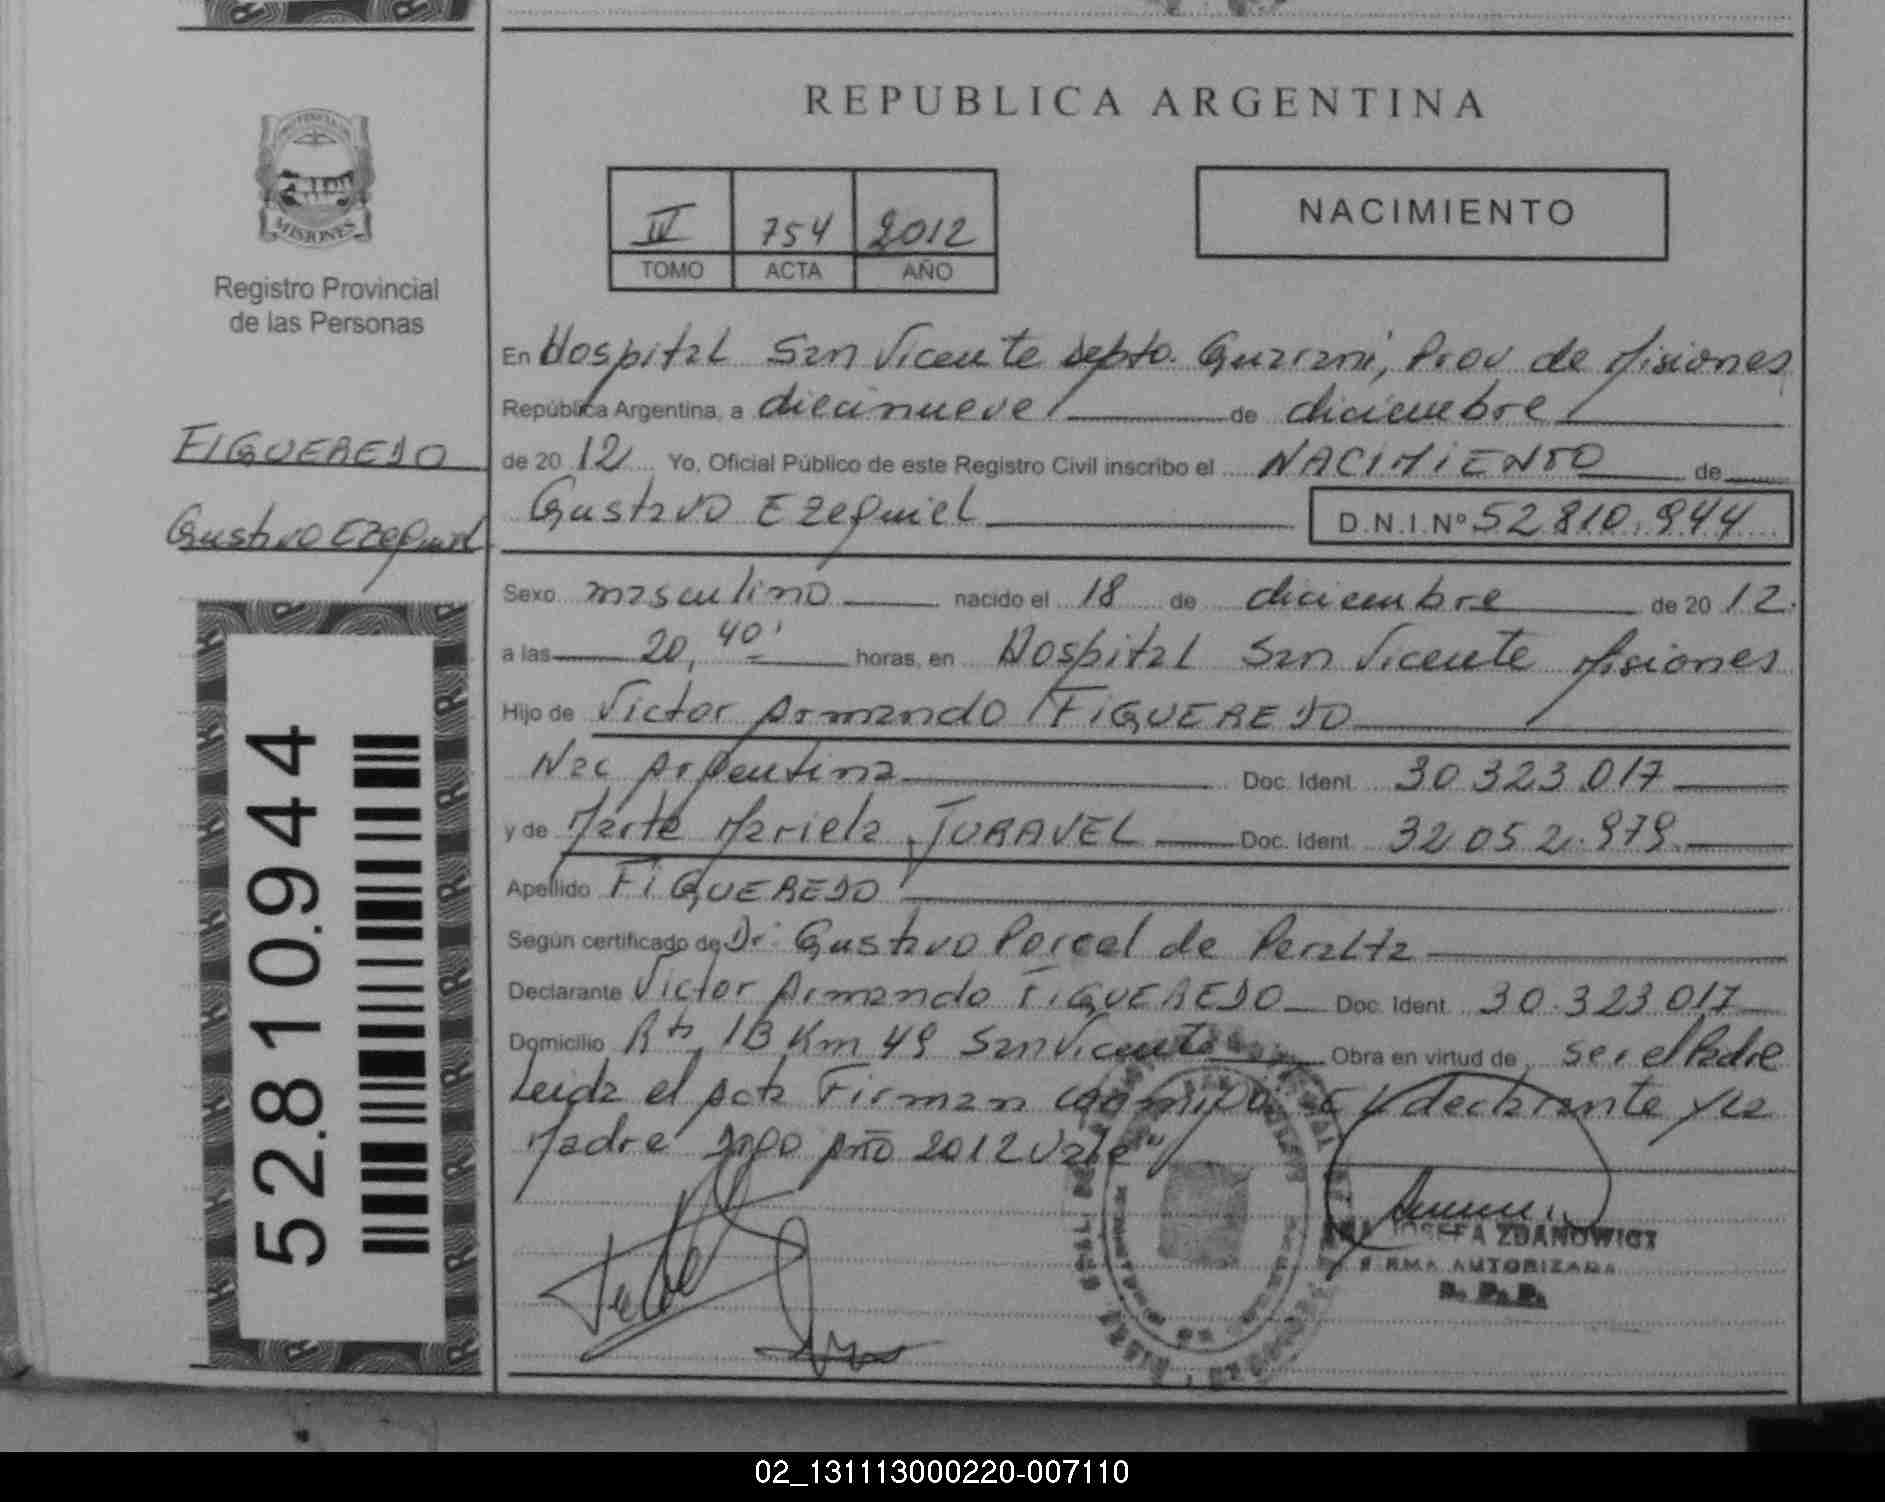 REPUBLICA ARGENTINA
PROVINCIA DE
MISIONES
Registro Provincial
de las Personas
IV 754 2012
TOMO ACTA AÑO
NACIMIENTO
En Hospital San Vicente depto. Guarani, Prov de Misiones
República Argentina, a diecinueve de diciembre
FIGUEREDO
de 20 12 Yo, Oficial Público de este Registro Civil inscribo el NACIMIENTO de
Gustavo Ezequiel
Gustavo Ezequiel D.N.I.Nº 52 810.944
Sexo masculino nacido el 18 de diciembre de 20 12.
a las 20, 40' horas, en Hospital San Vicente Misiones
Hijo de Victor Armando FIGUEREDO
Nac Argentina Doc. Ident. 30 323 017
y de Marta Mariela JURAVEL Doc. Ident. 32 052.979
Apellido FIGUEREDO
Según certificado de Dr. Gustavo Porcel de Peralta
Declarante Victor Armando FIGUEREDO Doc. Ident. 30.323 017
Domicilio Rta 13 Km 49 San Vicente Obra en virtud de ser el Padre
Leida el acta Firman conmigo el declarante y la
Madre Año 2012 Vale"
52.810.944
JOSEFA ZDANOWICZ
FIRMA AUTORIZADA
R. P. P.
02_131113000220-007110